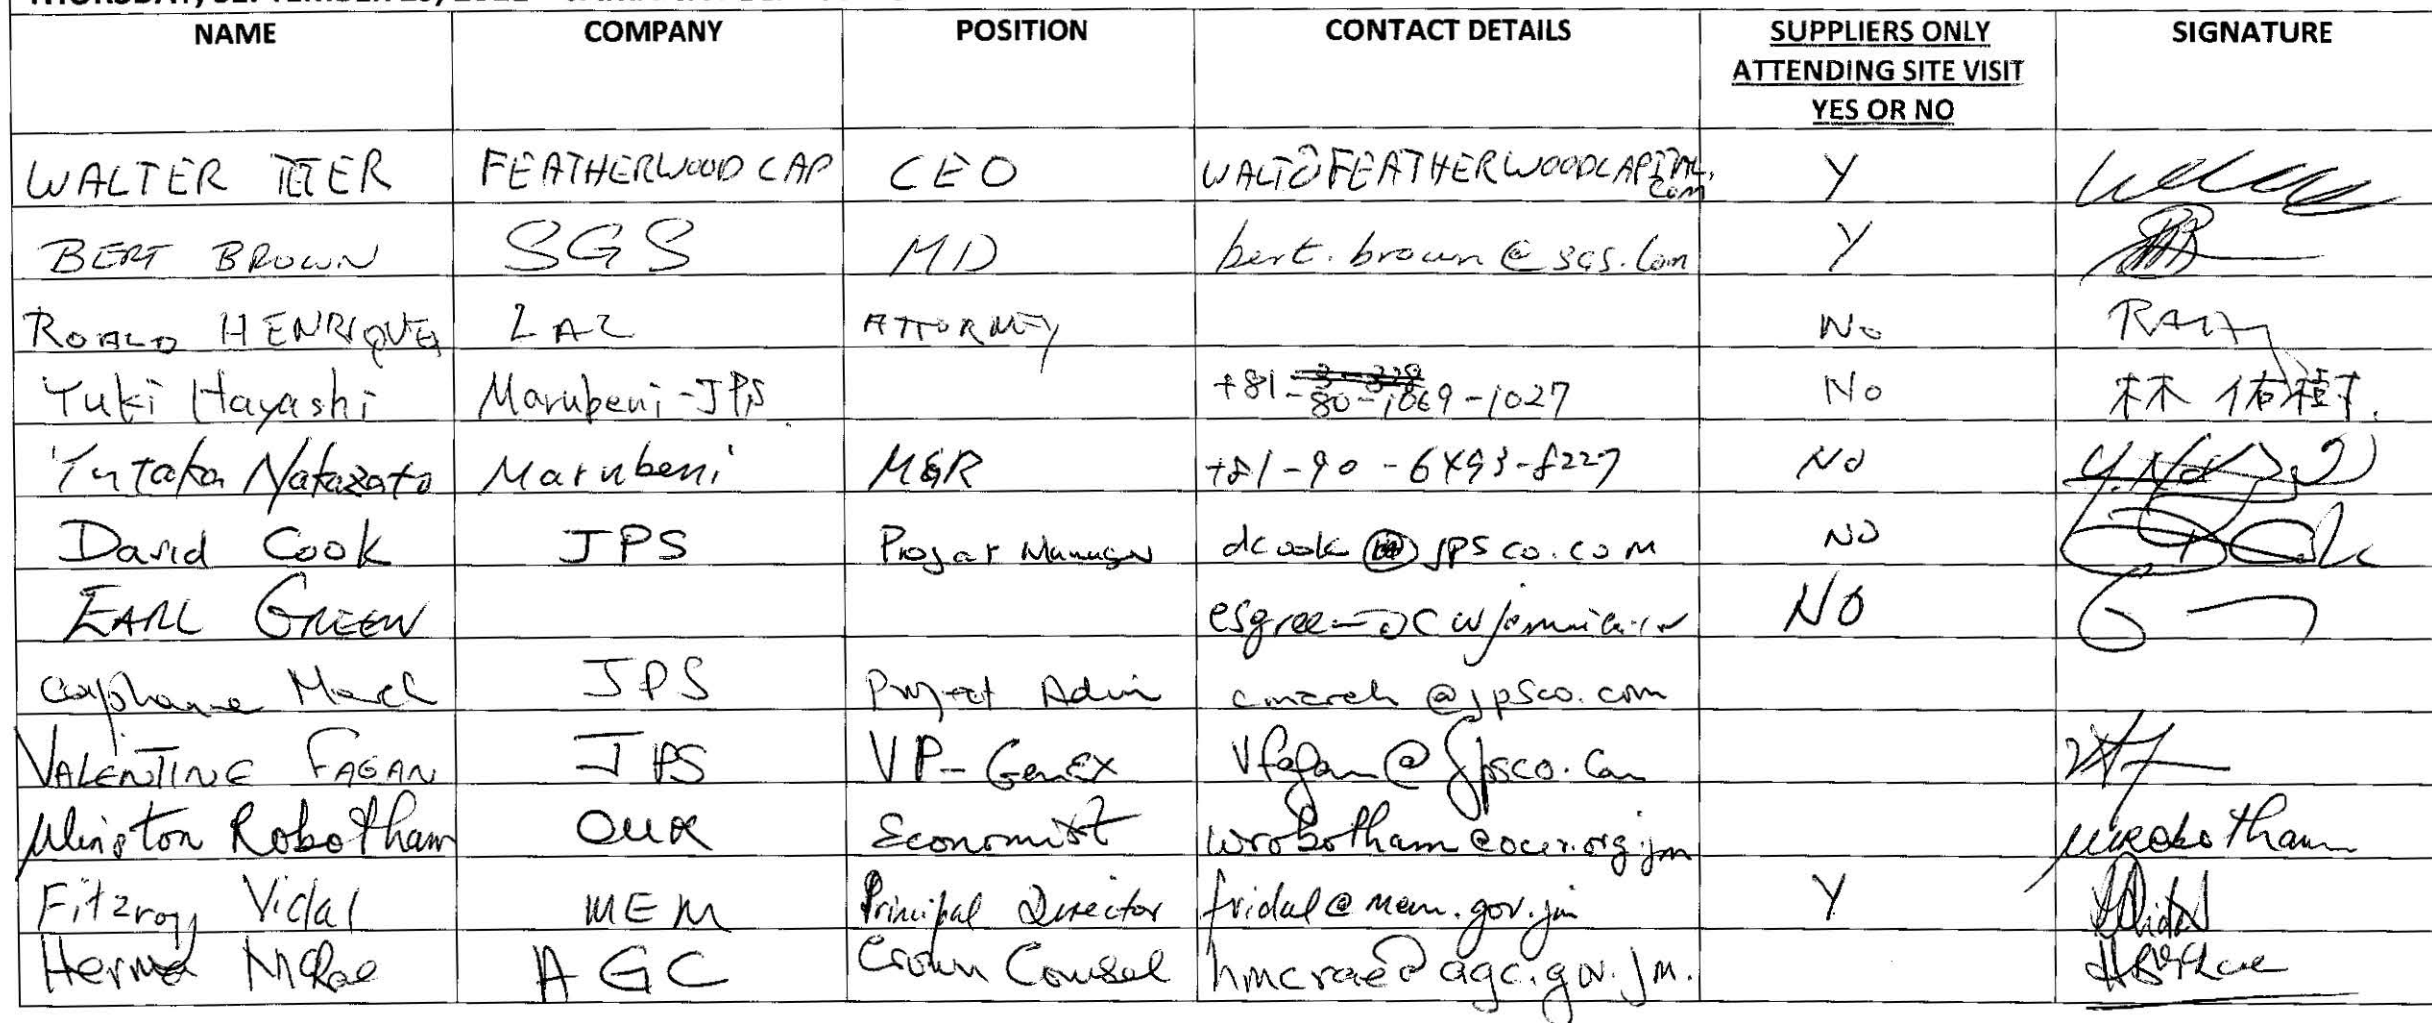 NAME COMPANY POSITION CONTACT DETAILS SUPPLIERS ONLY SIGNATURE
ATTENDING SITE VISIT
YES OR NO
WALTER TETER FEATHERWOOD CAP CEO WALT@FEATHERWOODCAPITAL.
com Y
BERT BROWN SGS MD bert.brown@sgs.com Y
HENRIQUES ATTORNEY No
Yuki Hayashi Marubeni-JPS +81-80-1069-1027 No 林 佑樹.
Yutaka Nakazato Marubeni MGR +81-90-6493-8227 No
David Cook JPS Project Manager dcook@jpsco.com NO
EARL GREEN NO
March JPS Project Admin cmarch@jpsco.com
VALENTINE FAGAN JPS VP-GenEX vfagan@jpsco.com
Winston Robotham OUR Economist wrobotham@our.org.jm
Fitzroy Vidal MEM Principal Director fvidal@mem.gov.jm Y
Herma McRae AGC Crown Counsel hmcrae@agc.gov.jm.